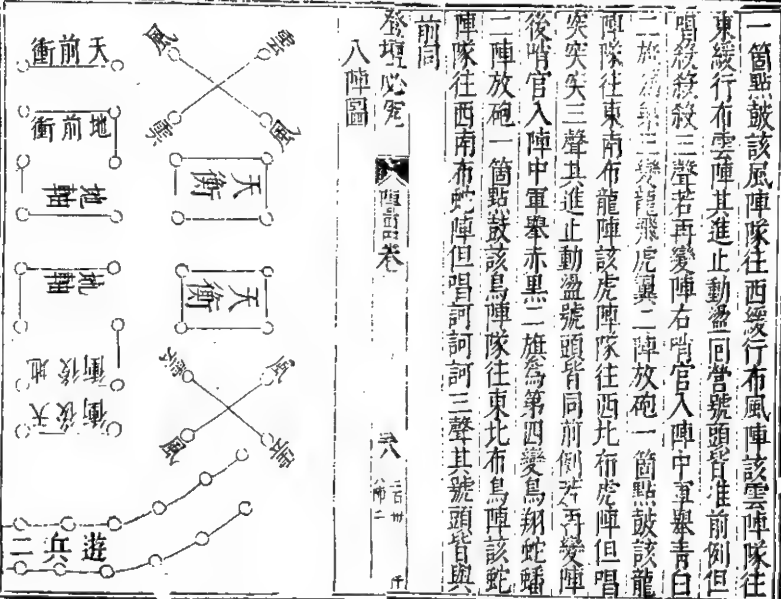 一箇點鼓該風陣隊往西緩行布風陣該雲陣隊往
東緩行布雲陣其進止動盪回營號頭皆准前例但
唱殺殺殺三聲若再變陣右哨官入陣中軍舉青白
二旗為第三變龍飛虎翼二陣放砲一箇點鼓該龍
陣隊往東南布龍陣該虎陣隊往西北布虎陣但唱
突突突三聲其進止動盪號頭皆同前例若再變陣
後哨官入陣中軍舉赤黑二旗為第四變鳥翔蛇蟠
二陣放砲一箇點鼓該鳥陣隊往東北布鳥陣該蛇
陣隊往西南布蛇陣但唱訶訶訶三聲其號頭皆與
前同
登壇必究
卷
八
八陣圖
雲
風
風
雲
天衝
天衝
風
雲
風
雲
天前衝
地前衝
地軸
地軸
地後衝
天後衝
遊兵二